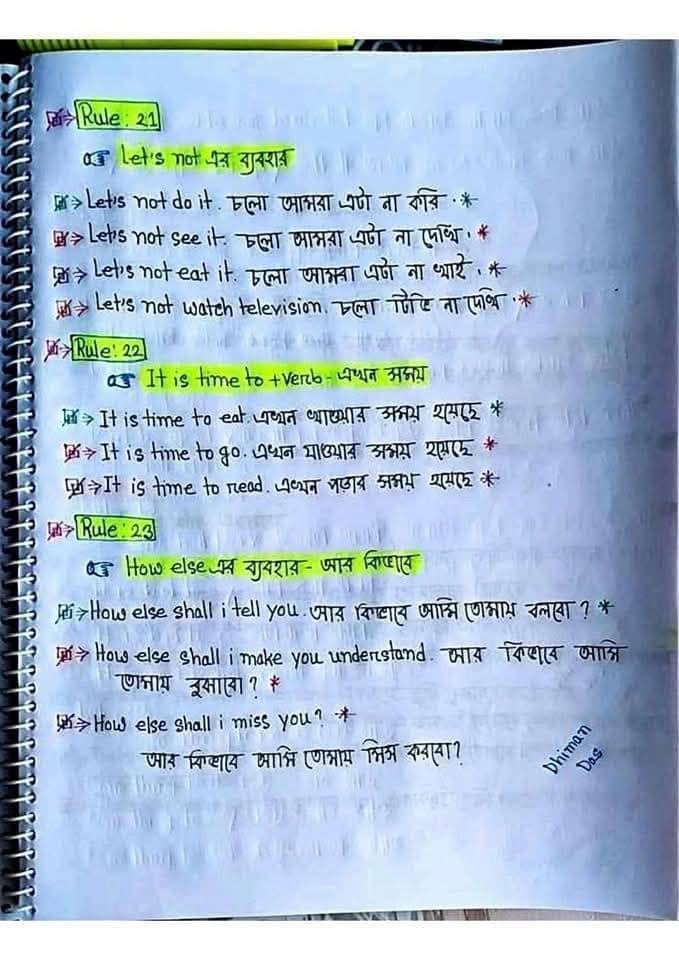 Rule: 21
Let's not এর ব্যবহার
Let's not do it. চলো আমরা এটা না করি. *
Let's not see it. চলো আমরা এটা না দেখি. *
Let's not eat it. চলো আমরা এটা না খাই. *
Let's not watch television. চলো টিভি না দেখি. *
Rule: 22
It is time to + verb - এখন সময়
It is time to eat. এখন খাওয়ার সময় হয়েছে *
It is time to go. এখন যাওয়ার সময় হয়েছে *
It is time to read. এখন পড়ার সময় হয়েছে *
Rule: 23
How else এর ব্যবহার - আর কিভাবে
How else shall i tell you. আর কিভাবে আমি তোমায় বলবো ? *
How else shall i make you understand. আর কিভাবে আমি
তোমায় বুঝাবো ? *
How else shall i miss you? *
আর কিভাবে আমি তোমায় মিস করবো?
Dhiman
Das